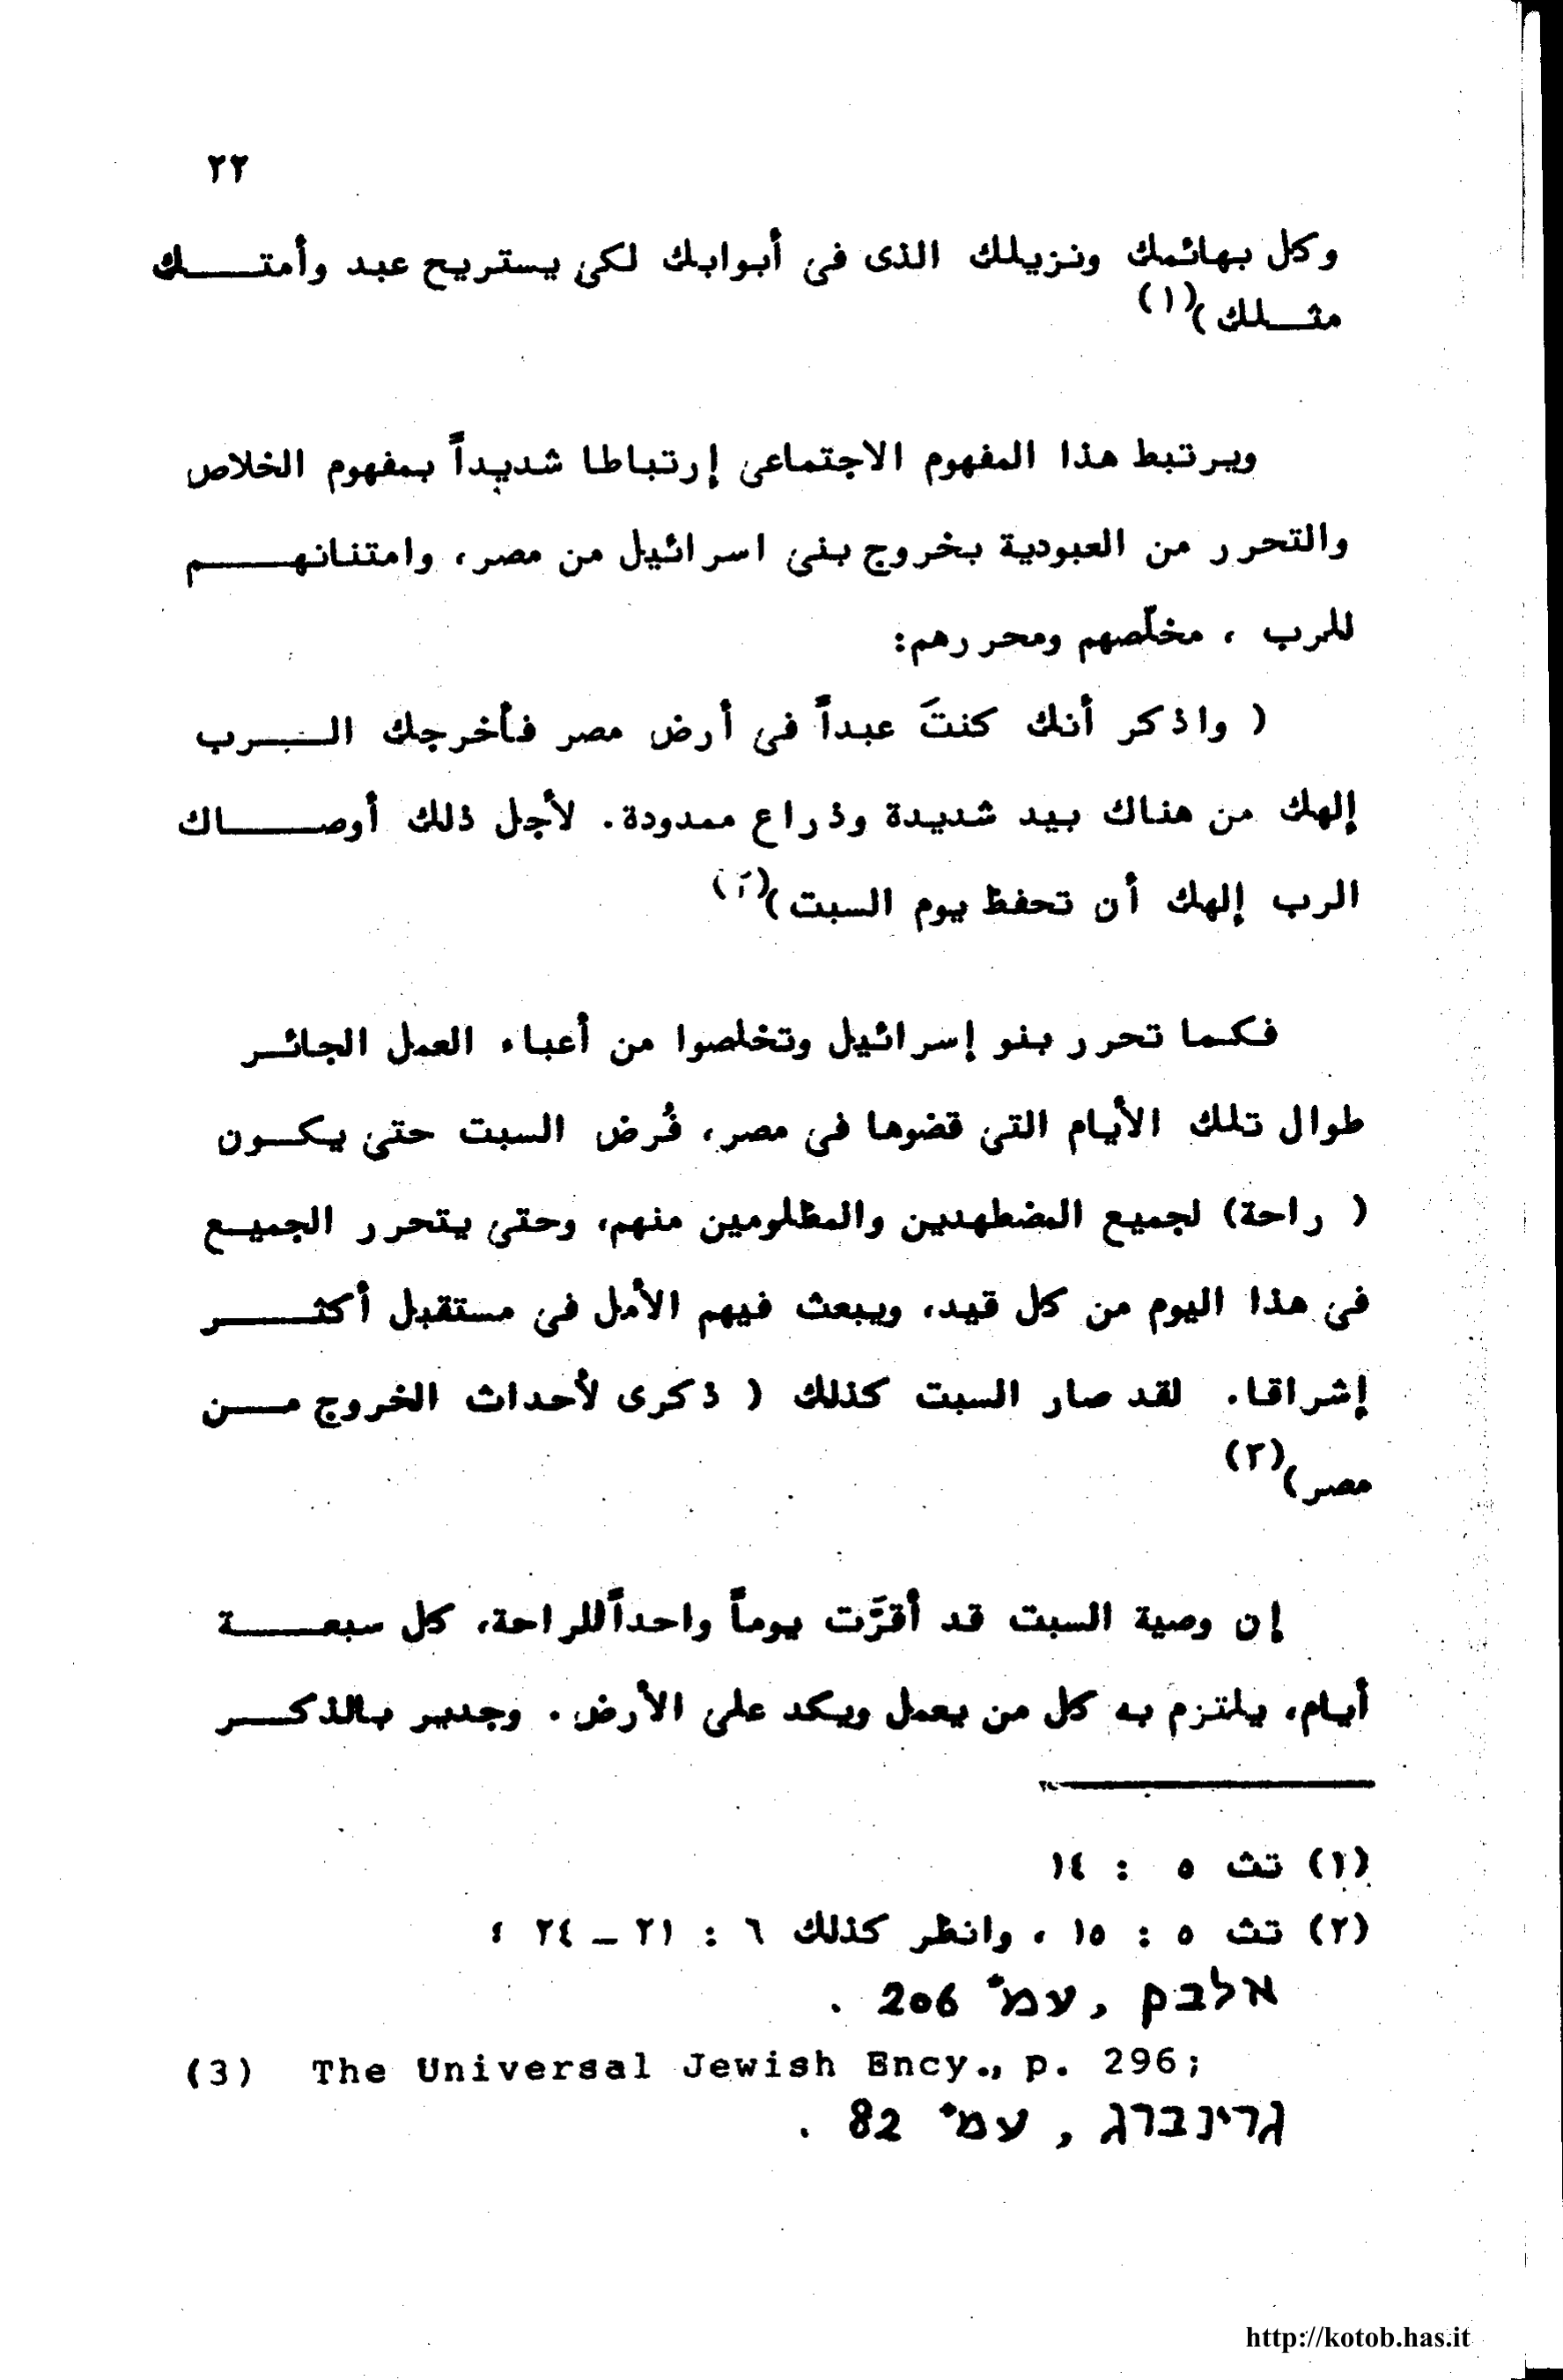 ٢٢
وكل بهائمك ونزيلك الذى فى أبوابك لكى يستريح عبد وأمتك
مثلك)(١)
ويرتبط هذا المفهوم الاجتماعى إرتباطا شديداً بمفهوم الخلاص
والتحرر من العبودية بخروج بنى اسرائيل من مصر، وامتنانهم
للرب ، مخلّصهم ومحررهم:
( واذكر أنك كنتَ عبداً فى أرض مصر فأخرجك الرب
إلهك من هناك بيد شديدة وذراع ممدودة. لأجل ذلك أوصاك
الرب إلهك أن تحفظ يوم السبت)(٢)
فكما تحرر بنو إسرائيل وتخلصوا من أعباء العمل الجائر
طوال تلك الأيام التى قضوها فى مصر، فُرض السبت حتى يكون
( راحة) لجميع المضطهدين والمظلومين منهم، وحتى يتحرر الجميع
فى هذا اليوم من كل قيد، ويبعث فيهم الأمل فى مستقبل أكثر
إشراقا. لقد صار السبت كذلك ( ذكرى لأحداث الخروج من
مصر)(٣)
إن وصية السبت قد أقرَّت يوماً واحداً للراحة، كل سبعة
أيام، يلتزم به كل من يعمل ويكد على الأرض. وجدير بالذكر
(١) تث ٥ : ١٤
(٢) تث ٥ : ١٥ ، وانظر كذلك ٦ : ٢١ – ٢٤ ؛
אלבק , עמ' 206 .
(3) The Universal Jewish Ency., p. 296;
גרינברג , עמ' 82 .
http://kotob.has.it